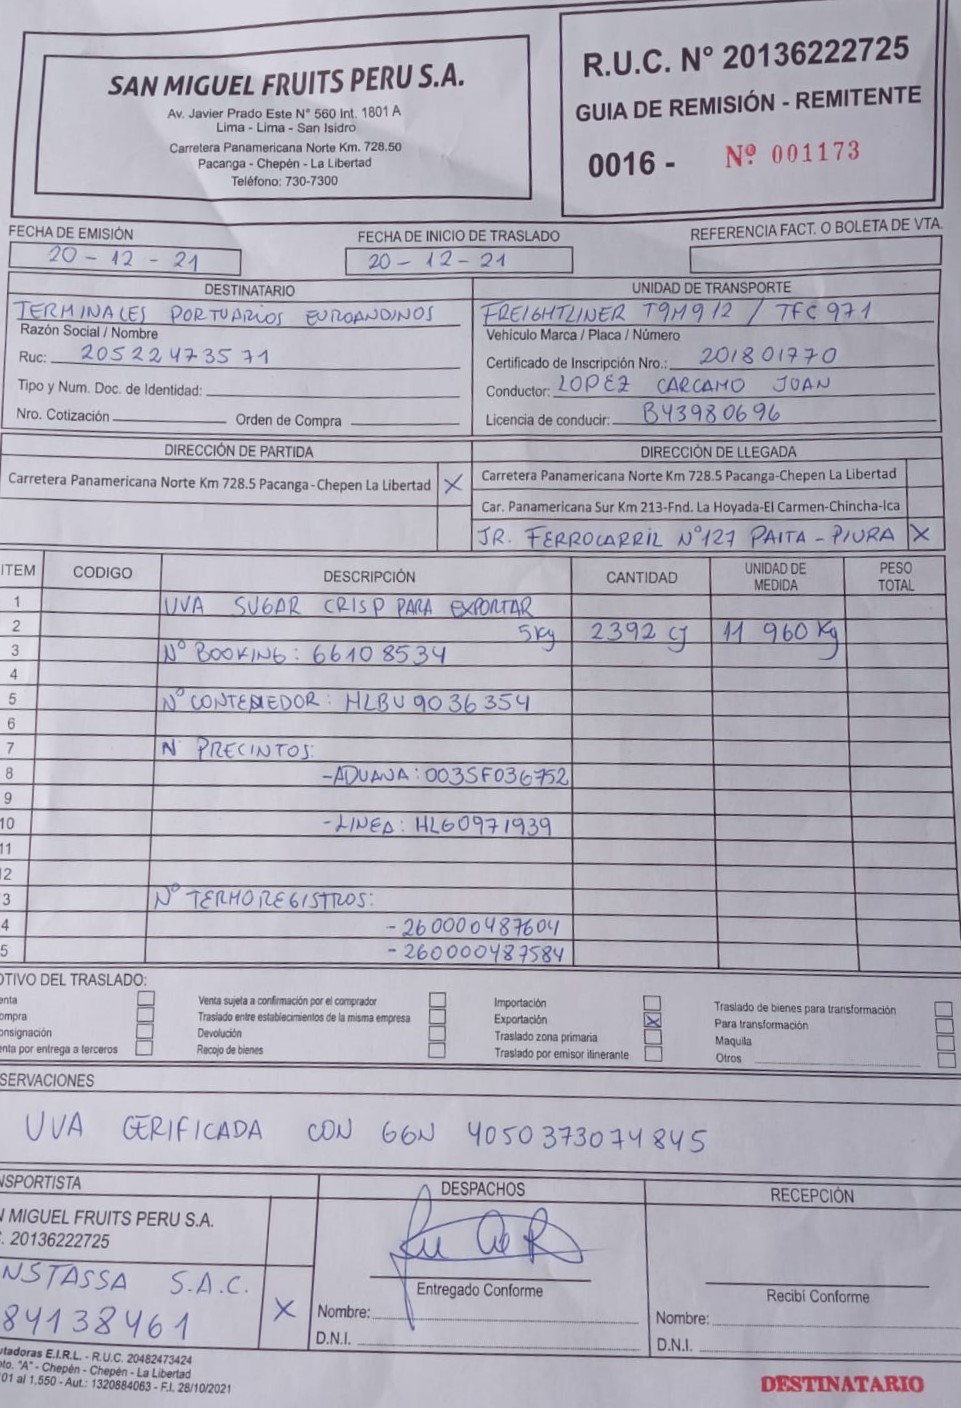 SAN MIGUEL FRUITS PERU S.A.
Av. Javier Prado Este N° 560 Int. 1801 A
Lima - Lima - San Isidro
Carretera Panamericana Norte Km. 728.50
Pacanga - Chepén - La Libertad
Teléfono: 730-7300
R.U.C. N° 20136222725
GUIA DE REMISIÓN - REMITENTE
0016 - Nº 001173
FECHA DE EMISIÓN
20 - 12 - 21
FECHA DE INICIO DE TRASLADO
20 - 12 - 21
REFERENCIA FACT. O BOLETA DE VTA.
DESTINATARIO
TERMINALES PORTUARIOS EUROANDINOS
Razón Social / Nombre
Ruc: 20522473571
Tipo y Num. Doc. de Identidad:
Nro. Cotización Orden de Compra
UNIDAD DE TRANSPORTE
FREIGHTLINER T9M912 / TFC 971
Vehículo Marca / Placa / Número
Certificado de Inscripción Nro.: 201801770
Conductor: LOPEZ CARCAMO JUAN
Licencia de conducir: B43980696
DIRECCIÓN DE PARTIDA
Carretera Panamericana Norte Km 728.5 Pacanga-Chepen La Libertad X
DIRECCIÓN DE LLEGADA
Carretera Panamericana Norte Km 728.5 Pacanga-Chepen La Libertad
Car. Panamericana Sur Km 213-Fnd. La Hoyada-El Carmen-Chincha-Ica
JR. FERROCARRIL N°127 PAITA - PIURA X
ITEM CODIGO DESCRIPCIÓN CANTIDAD UNIDAD DE MEDIDA PESO TOTAL
1 UVA SUGAR CRISP PARA EXPORTAR
2 5Kg 2392 cj 11 960 Kg
3 N° BOOKING: 66108534
4
5 N° CONTENEDOR: HLBU 9036354
6
7 N° PRECINTOS:
8 -ADUANA: 003SF036752
9
10 -LINEA: HLG0971939
11
12
3 N° TERMOREGISTROS:
4 - 2600000487604
5 - 260000487584
OTIVO DEL TRASLADO:
enta
ompra
onsignación
enta por entrega a terceros
Venta sujeta a confirmación por el comprador
Traslado entre establecimientos de la misma empresa
Devolución
Recojo de bienes
Importación
Exportación X
Traslado zona primaria
Traslado por emisor itinerante
Traslado de bienes para transformación
Para transformación
Maquila
Otros
SERVACIONES
UVA CERIFICADA CON GGN 4050373074845
NSPORTISTA
N MIGUEL FRUITS PERU S.A.
. 20136222725
NSTASSA S.A.C.
84138461 X
DESPACHOS
Entregado Conforme
Nombre:
D.N.I.
RECEPCIÓN
Recibí Conforme
Nombre:
D.N.I.
tadoras E.I.R.L. - R.U.C. 20482473424
pto. "A" - Chepén - Chepén - La Libertad
01 al 1.550 - Aut.: 1320884063 - F.I. 28/10/2021
DESTINATARIO